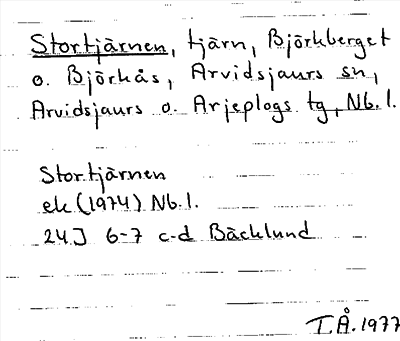 Stortjärnen, tjärn, Björkberget
o. Björkås, Arvidsjaurs sn,
Arvidsjaurs o. Arjeplogs tg, Nb.l.
Stortjärnen
ek (1974) Nb.l.
24J 6-7 c-d Bäcklund
T.Å. 1977